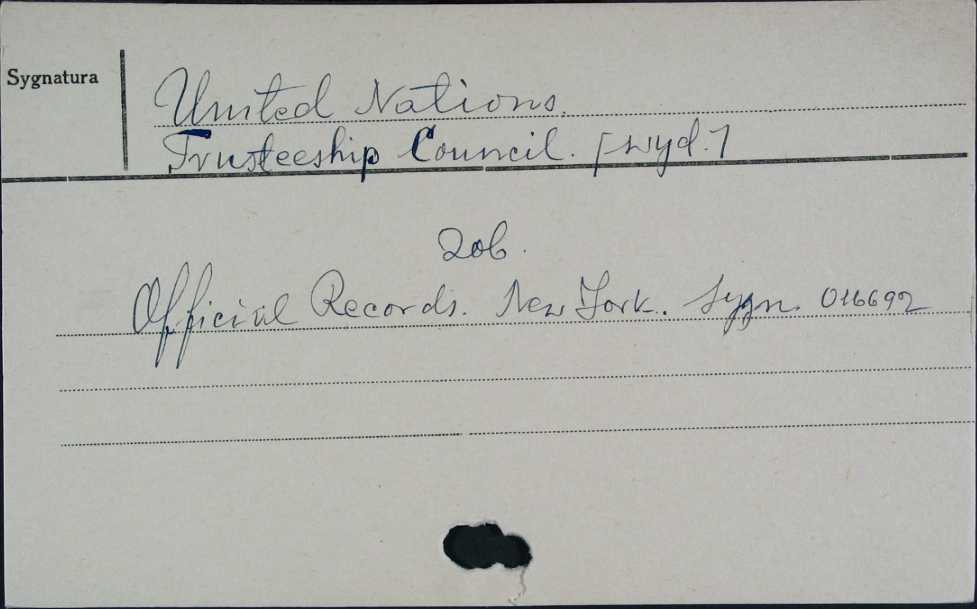 Sygnatura
United Nations.
Trusteeship Council. [wyd.]
Zob.
Official Records. New York. Sygn. 016692